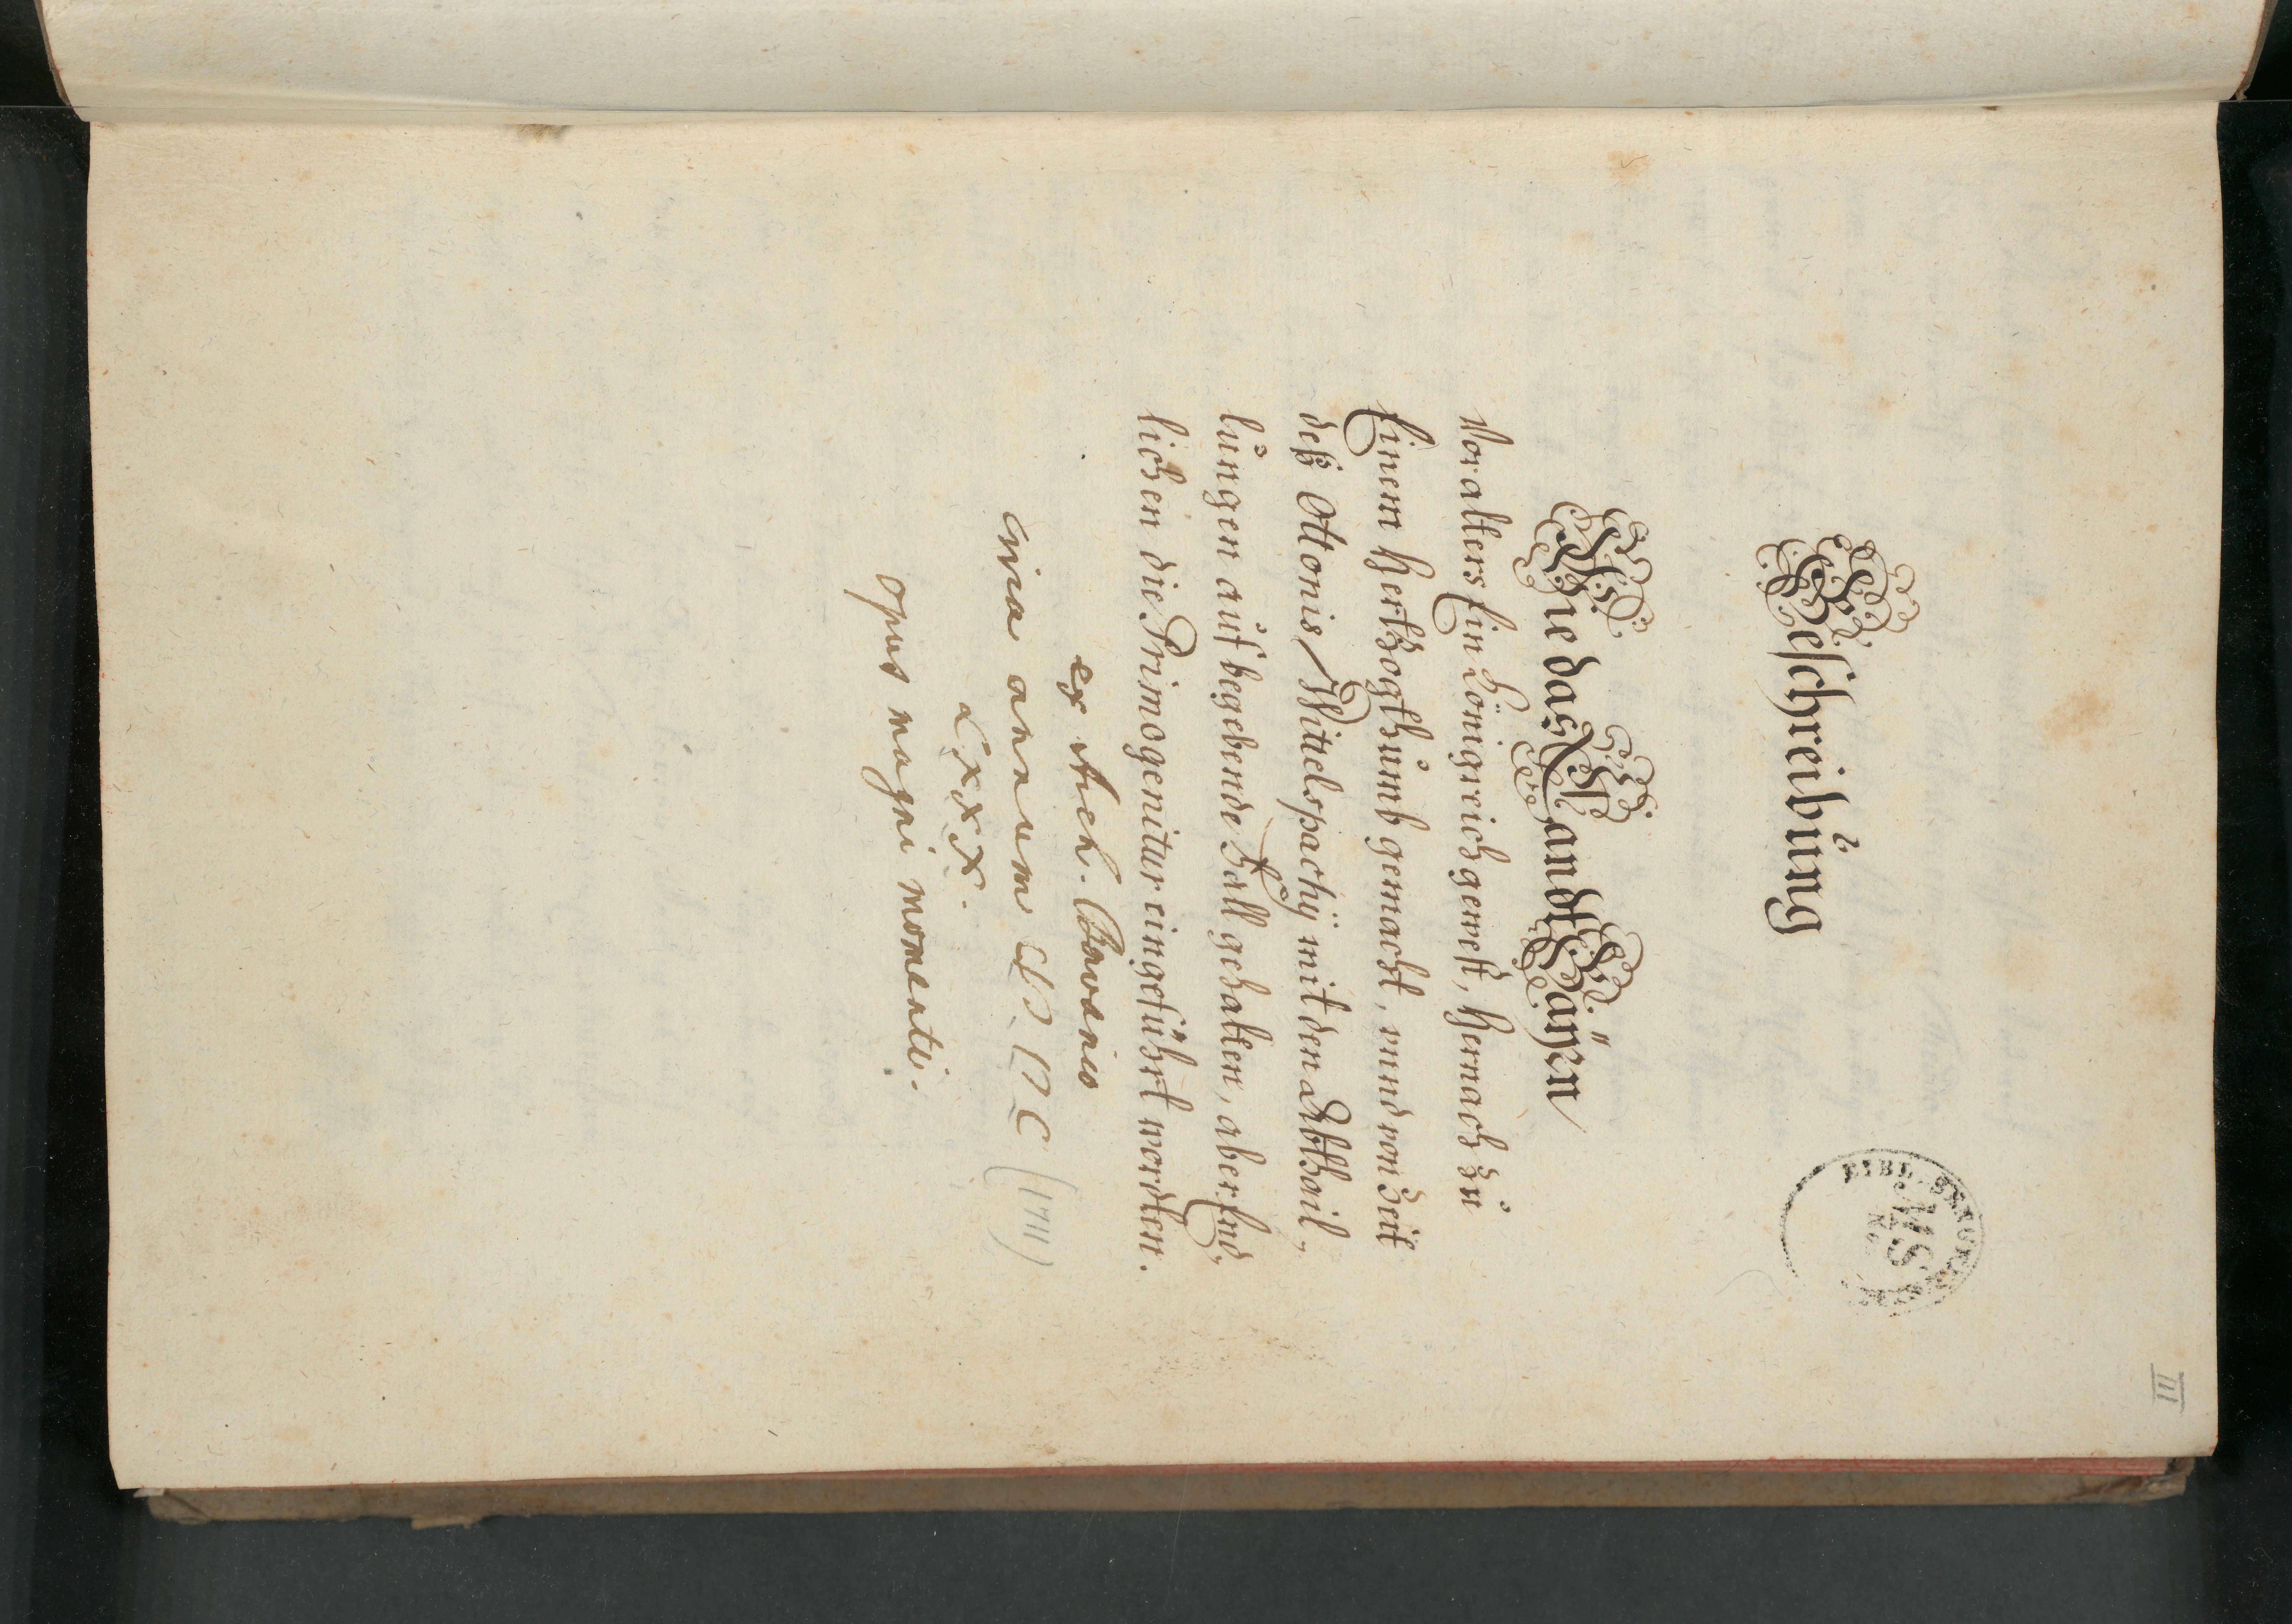 III
MS
Beschreibung
Wie das Landt Bäÿen
Vor alters Ein Königreich gewest, hernach zu
Einem hertzogthumb gemacht, vnnd von Zeit
deß Ottonis Wittelspachij mit den Abthail,,
lungen auf begebende Fäll gehalten, aber End,,
lichen die Primogenitur eingeführt worden.
ex Arch. Bavarico
circa annum CIƆ IƆ C (1711)
LXXX.
opus magni momenti.